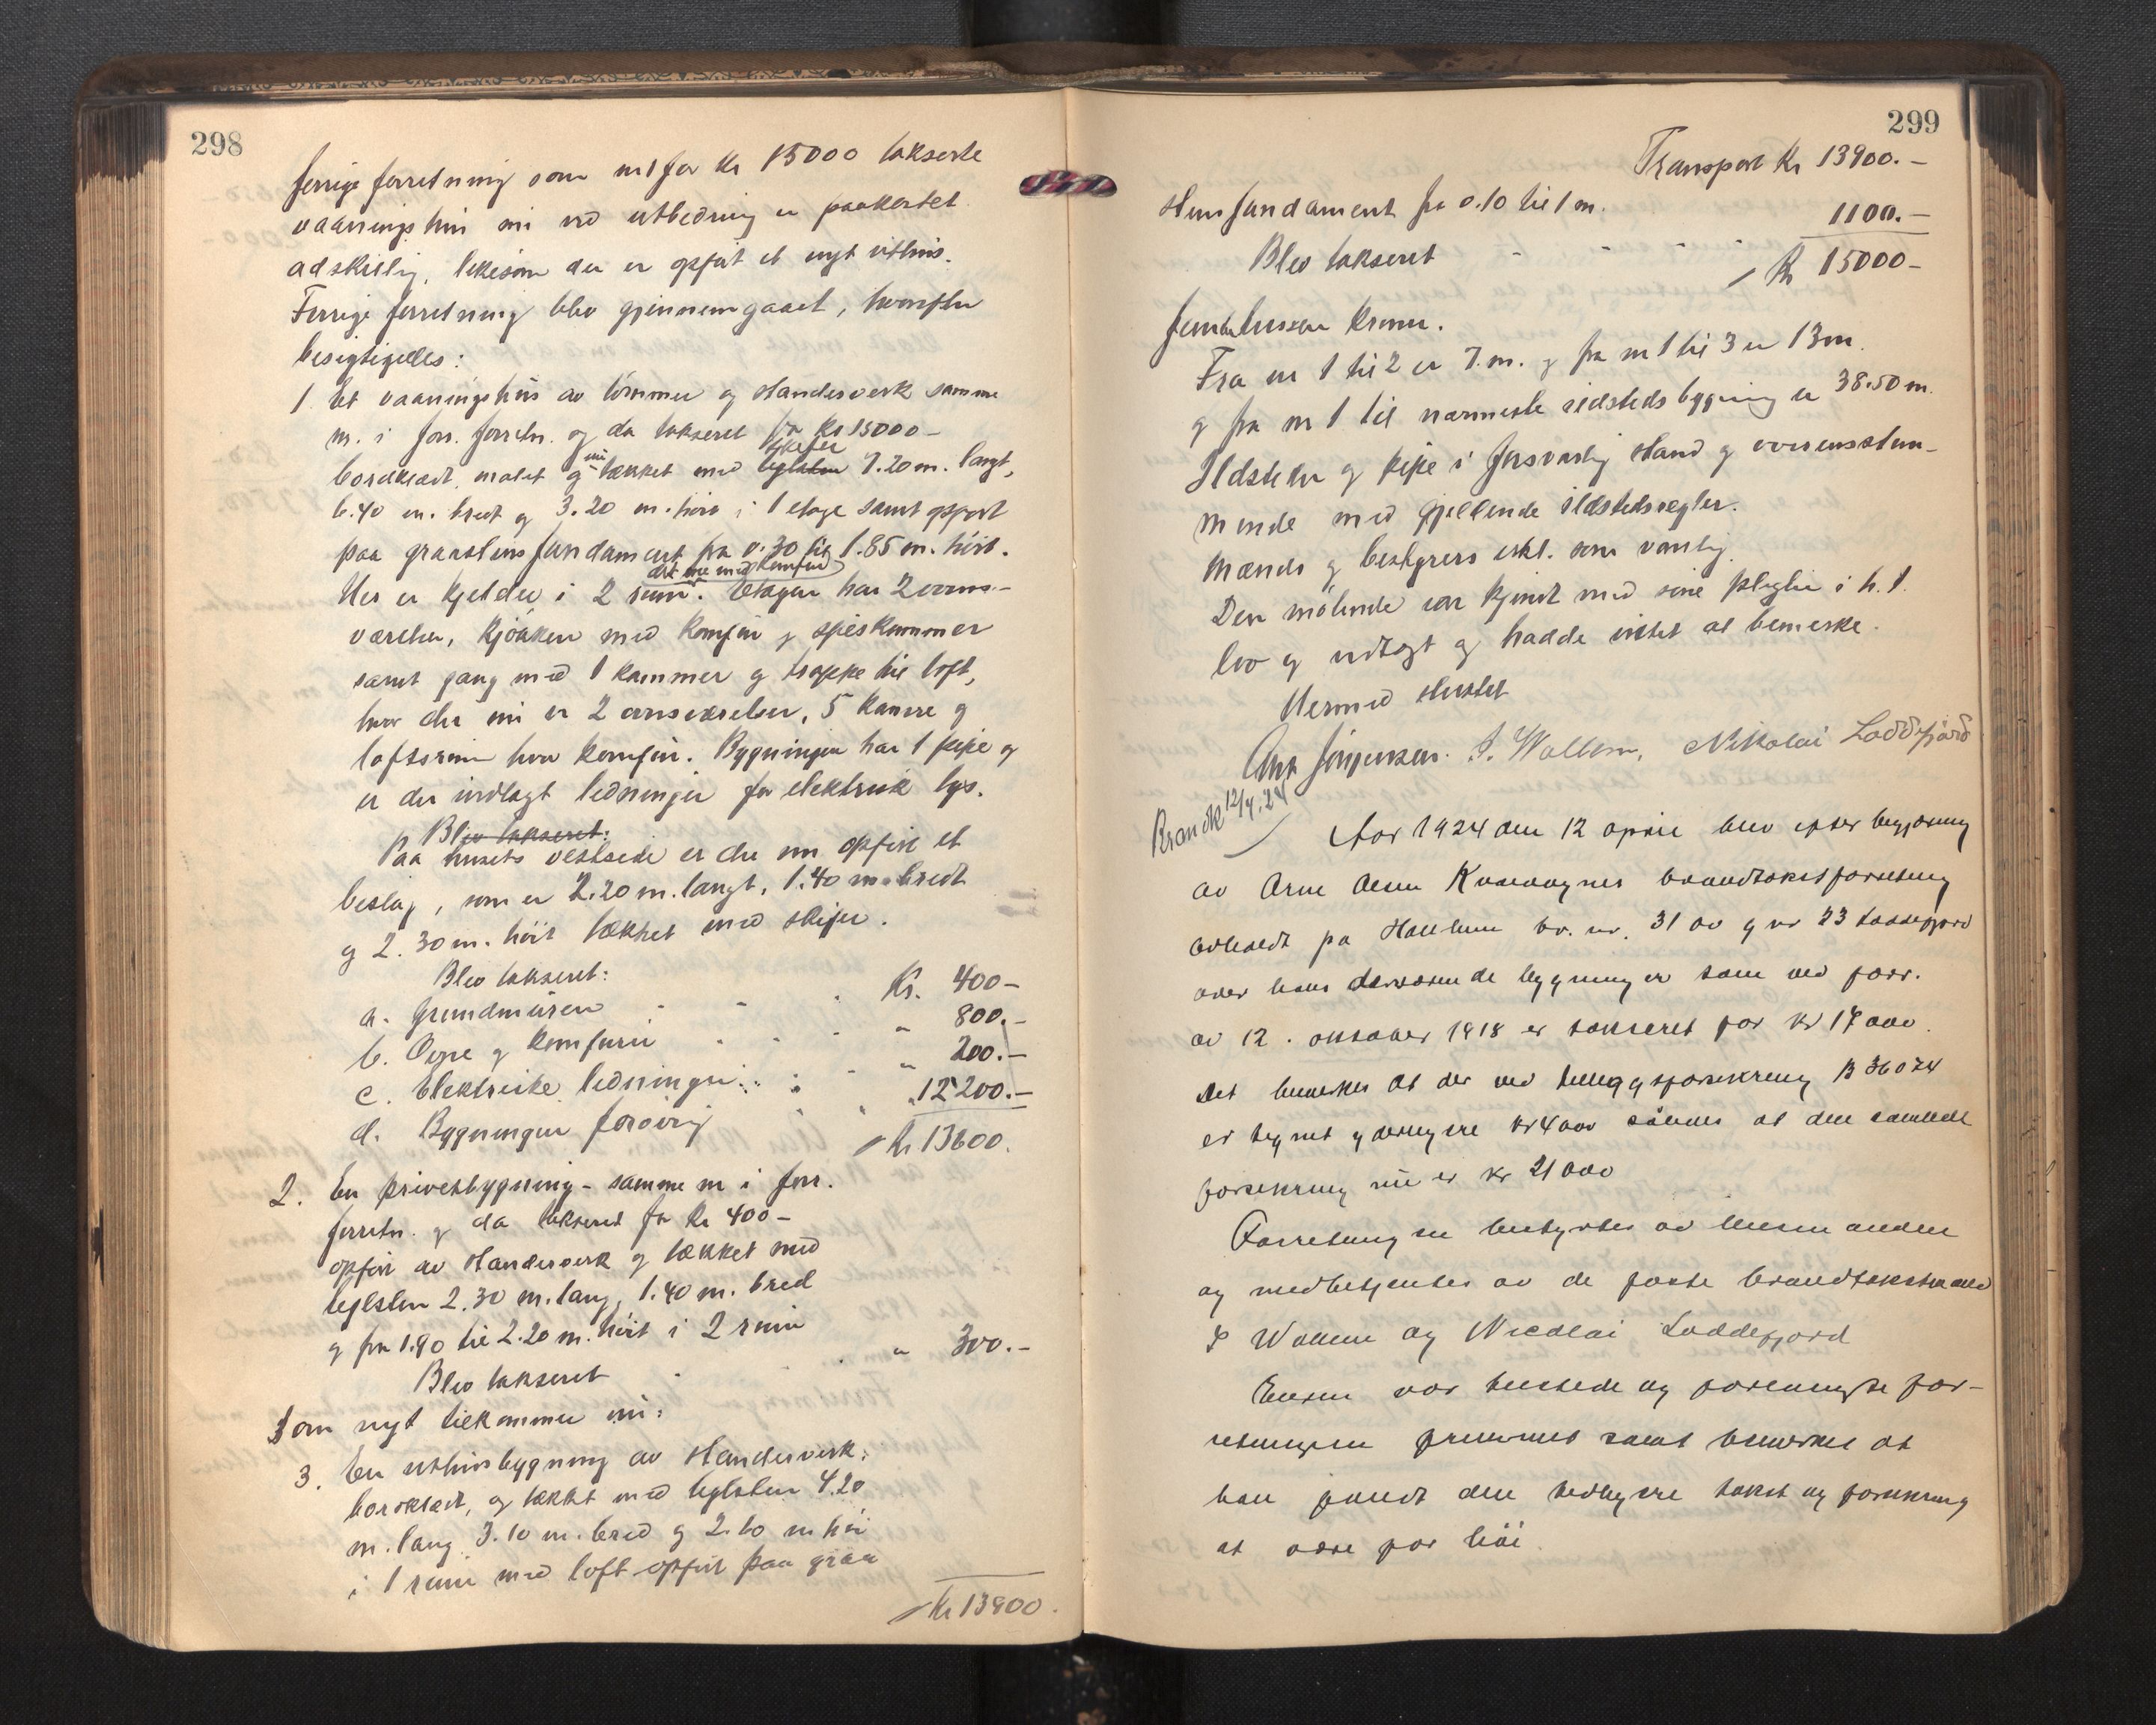 298
forrige forretning som nr 1 for kr 15000 takserte
vaaningshus nu ved utbedring er paakostet
adskillig, likesom der er opført et nyt uthus.
Forrige forretning blev gjennemgaaet, hvorefter
besigtigelles:
1. Et vaaningshus av tømmer og standerverk samme
nr. i forr. forretn. og da takseret for kr 15000-
bordklædt, malet og nu tækket med teglsten skifer 7.20 m. langt,
6.40 m. bredt og 3.20 m. høit i 1 etage samt opført
paa graastensfundament fra 0.30 til 1.85 m. høit.
Her er kjelder i 2 rum. det ene med komfur Etagen har 2 ovns-
værelser, kjøkken med komfur og spiskammer
samt gang med 1 kammer og trappe til loft,
hvor der nu er 2 ovnsværelser, 5 kamre og
loftsrum hvor komfur. Bygningen har 1 pipe og
er der indlagt ledninger for elektrisk lys.
Blev takseret:
Paa husets vestside er der nu opført et
beslag, som er 2.20 m. langt, 1.40 m. bredt
og 2.30 m. høit tækket med skifer.
Blev takseret:
a. Grundmuren Kr. 400-
b. Ovne og komfurer " 800.-
c. Elektriske ledninger " 200.-
d. Bygningen forøvrig " 12200.-
Kr 13600.
2. En privetbygning - samme nr i forr.
forretn. og da takseret for kr 400-
opført av standerverk og tækket med
teglsten 2.30 m. lang, 1.40 m. bred
og fra 1.90 til 2.20 m. høit i 2 rum
Blev takseret " 300.-
Som nyt tilkommer nu:
3. En uthusbygning av standerverk,
bordklædt, og tækket med teglsten 4.20
m. lang 3.10 m. bred og 2.60 m høi
i 1 rum med loft opført paa graa
Kr 13900.
299
Transport Kr 13900.-
stensfundament fra 0.10 til 1 m.
Blev takseret 1100.-
Kr 15000-
femten tusen kroner.
Fra nr 1 til 2 er 7. m. og fra nr 1 til 3 er 13 m.
og fra nr 1 til nærmeste ildsteds bygning er 38.50 m.
Ildsteder og pipe i forsvarlig stand og overensstem-
mende med gjeldende ildstedsregler.
Mænds og bestyrers erkl. som vanlig.
Den møtende var kjendt med sine pligter i h. t.
lov og vedtægt og hadde intet at bemerke.
Hermed sluttet
Ant Jörgensen. I. Wallem, Nikolai Loddefjord
Brandt. 12/4.24
Aar 1924 den 12 april blev efter begjæring
av Arne Olsen Kvaavagnes brandtakstforretning
avholdt på br. nr. 31 av g nr 23 Loddefjord
over hans derværende bygninger som ved forr.
av 12. oktober 1918 er takseret for kr 17000.
Det bemerkes at der ved tilleggsforsikring B 36074
er tegnet yderligere kr 4000 saaledes at den samlede
forsikring nu er kr 21000
Forretningen bestyrtes av lensmanden
og medbetjentes av de faste brandtakstmænd
I Wallem og Nicolai Loddefjord
Eieren var tilstede og forlangte for-
retningen fremmet samt bemerket at
han fandt den tidligere takst og forsikring
at være for høi.